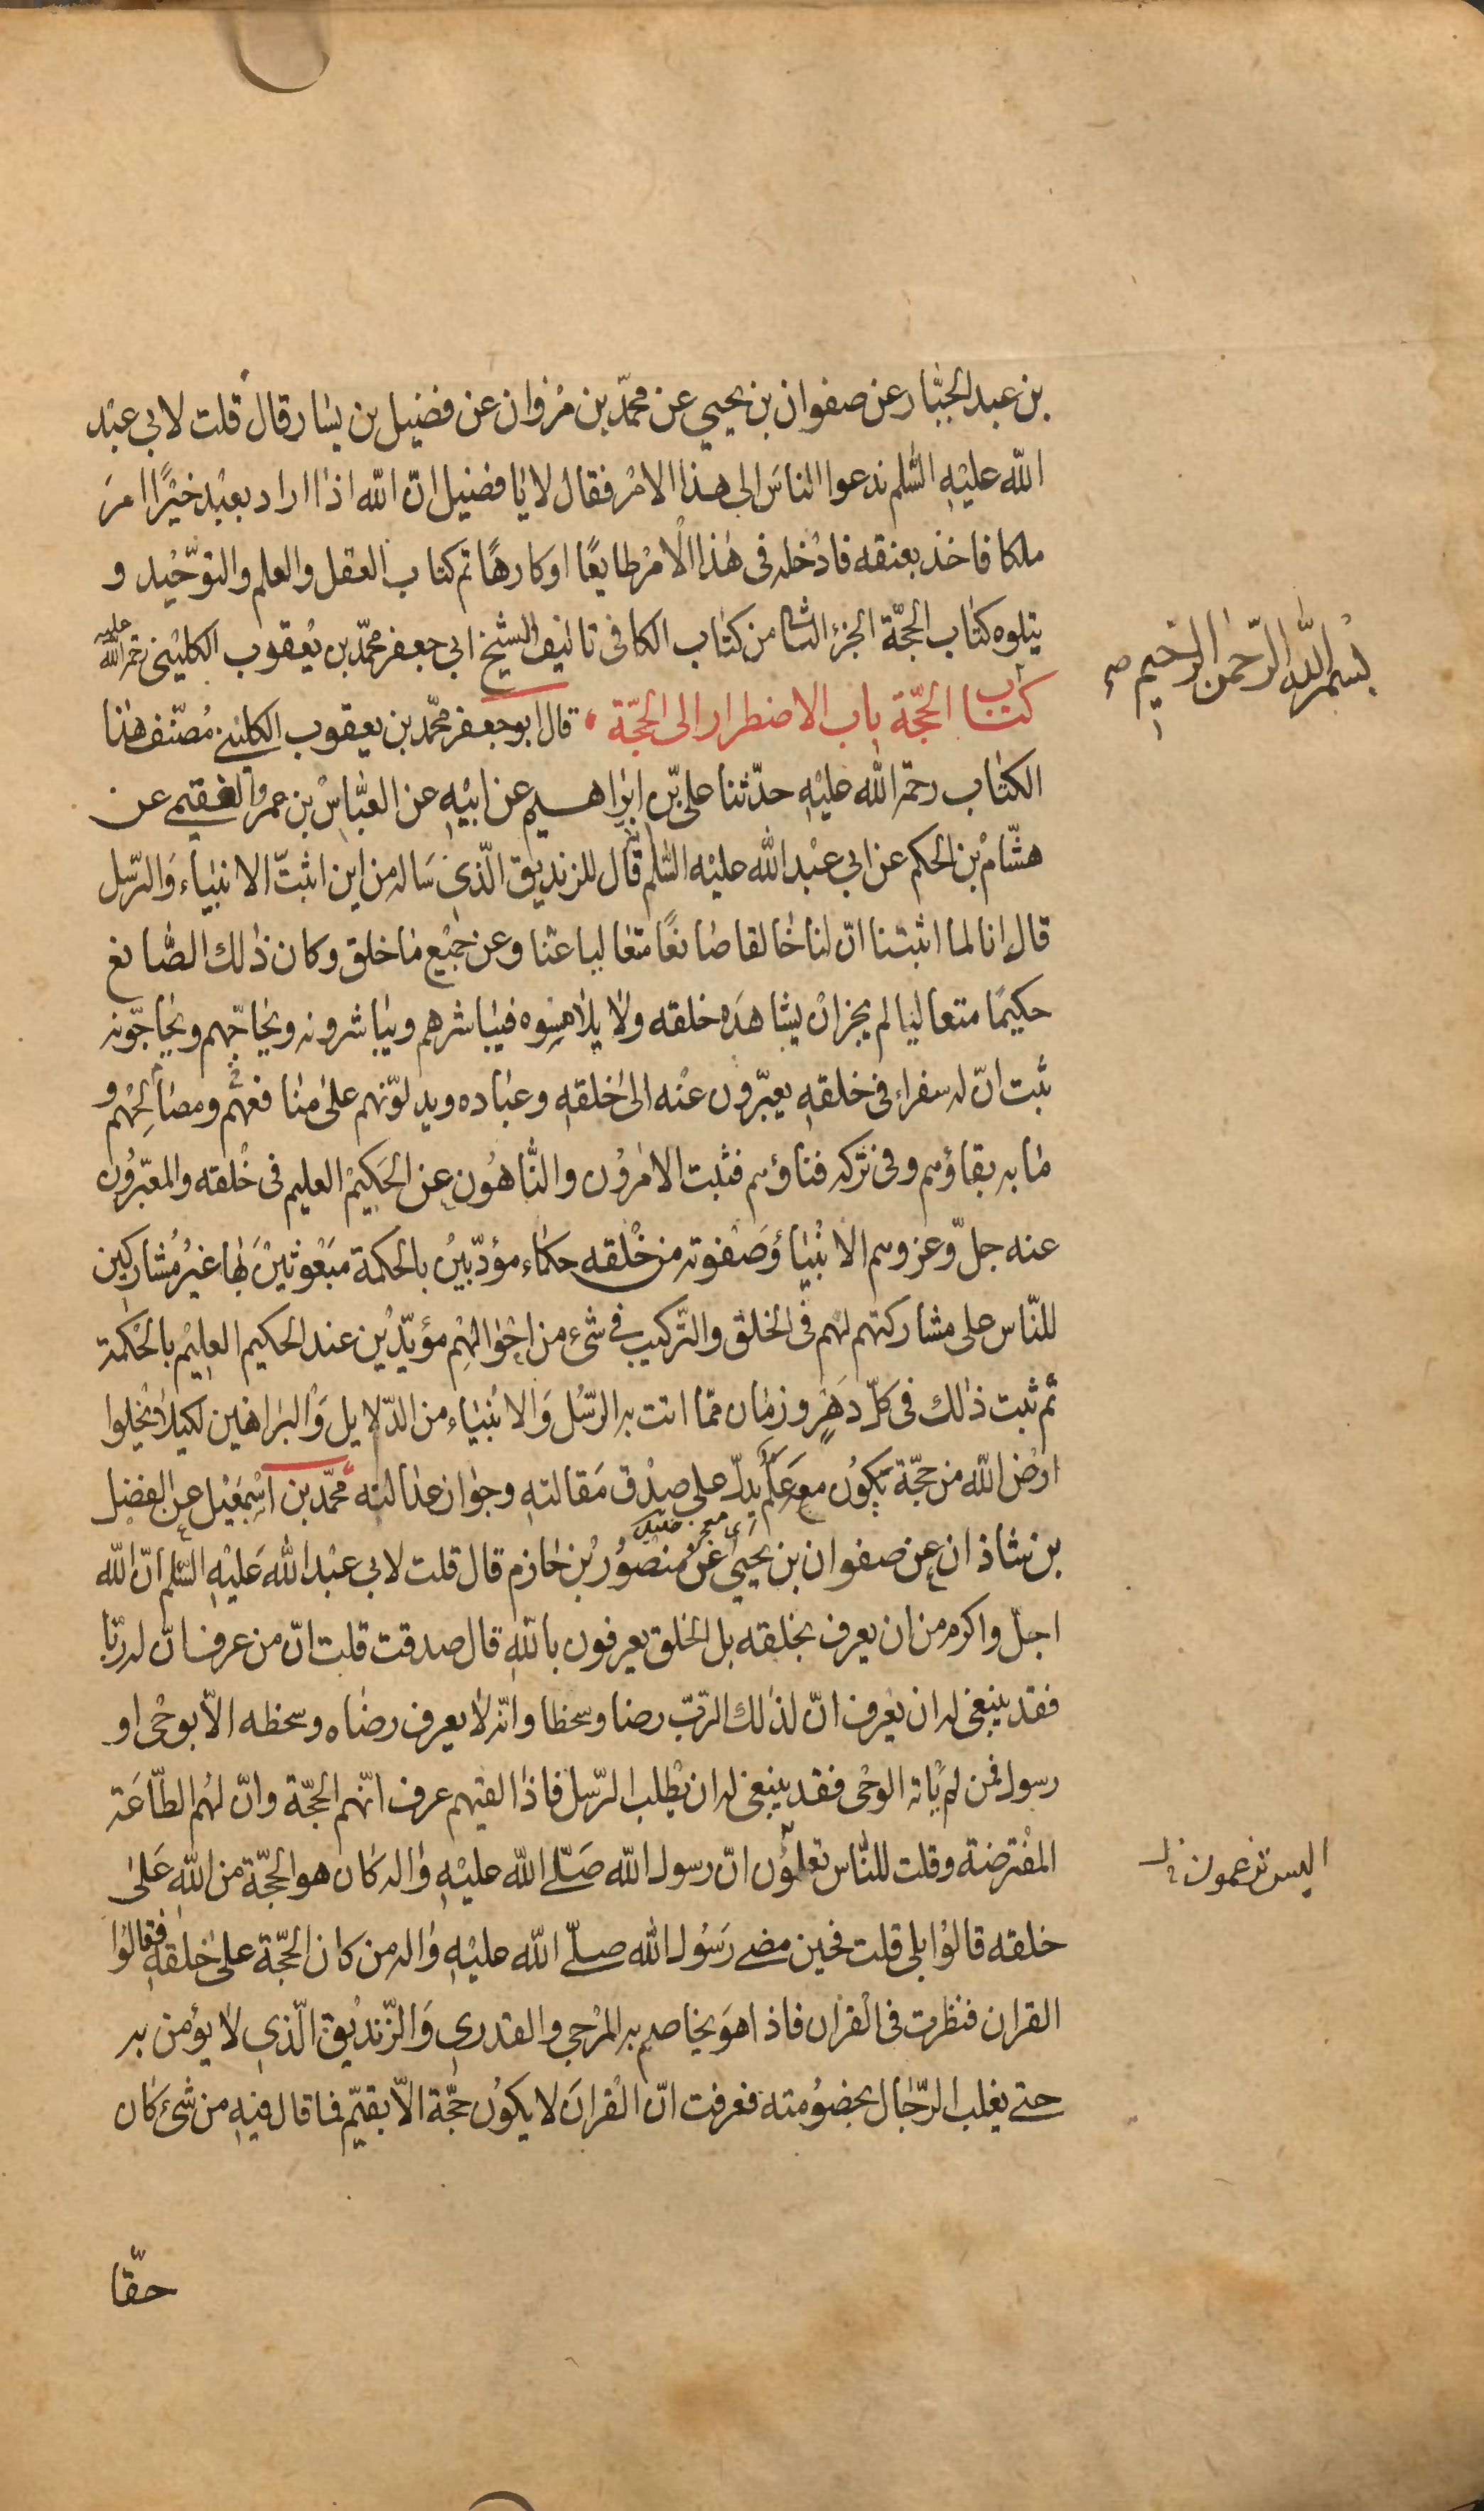 بن عبد الجبّار عن صفوان بن يحيي عن محمّد بن مروان عن فضيل بن يسار قال قلت لابي عبد
الله عليه السّلم ندعوا الناس الى هذا الامر فقال لا يا فضيل انّ الله اذا اراد بعبد خيرًا امرَ
ملكا فاخذ بعنقه فادخله فى هذا الامر طايعًا او كارهًا تم كتاب العقل والعلم والتوحيد و
يتلوه كتاب الحجّة الجزء الثانى من كتاب الكافى تاليف الشيخ ابي جعفر محمّد بن يعقوب الكلينى رحمة الله عليه
بسم الله الرّحمن الرّحيم صح
كتاب الحجّة باب الاضطرار الى الحجّة قال ابو جعفر محمّد بن يعقوب الكلينى مصنّف هذا
الكتاب رحمة الله عليه حدّثنا على بن ابراهيم عن ابيه عن العبّاس بن عمرو الفقيمى عن
هشام بن الحكم عن ابي عبد الله عليه السّلم قال للزنديق الّذي ساله من اين اثبتّ الانبياء والرّسل
قال انا لما اثبتنا انّ لنا خالقا صانعًا متعاليا عنّا وعن جميع ما خلق وكان ذلك الصّانع
حكيمًا متعاليا لم يجز ان يشاهده خلقه ولا يلامسوه فيباشرهم ويباشرونه ويحاجّهم ويحاجّونه
ثبت انّ له سفراء فى خلقه يعبّرون عنه الى خلقه وعباده ويدلّونهم على منافعهم ومصالحهم و
ما به بقاؤهم وفى تركه فناؤهم فثبت الامرون والنّاهون عن الحكيم العليم فى خلقه والمعبّرون
عنه جلّ وعز وهم الانبياؤ وصفوته من خلقه حكماء مؤدّبين بالحكمة مبعوثين بها غير مشاركين
للنّاس على مشاركتهم لهم فى الخلق والتّركيب فى شىء من احوالهم مؤيّدين عند الحكيم العليم بالحكمة
ثم ثبت ذلك فى كلّ دهر وزمان ممّا اتت به الرّسل والانبياء من الدّلايل والبراهين لكيلا تخلوا
ارض الله من حجّة يكون معه علم يدلّ على صدق مقالته وجواز عدالته محمّد بن اسمعيل عن الفضل
بن شاذان عن صفوان بن يحيى عن منصور بن حازم قال قلت لابي عبد الله عليه السّلم انّ الله
اجلّ واكرم من ان يعرف بخلقه بل الخلق يعرفون بالله قال صدقت قلت انّ من عرف انّ له ربّا
فقد ينبغى له ان يعرف انّ لذلك الرّبّ رضا وسخطا وانّه لا يعرف رضاه وسخطه الّا بوحى او
رسول فمن لم ياته الوحى فقد ينبغى له ان يطلب الرّسل فاذا لقيهم عرف انّهم الحجّة وانّ لهم الطّاعة
المفترضة وقلت للنّاس تعلمون انّ رسول الله صلّى الله عليه واله كان هو الحجّة من الله على
اليس تزعمون
خلقه قالوا بلى قلت فحين مضى رسول الله صلّى الله عليه واله من كان الحجّة على خلقه فقالوا
القران فنظرت فى القران فاذا هو يخاصم به المرجي والقدري والزّنديق الّذي لا يؤمن به
حتى يغلب الرّجال بخصومته فعرفت انّ القران لا يكون حجّة الّا بقيّم فما قال فيه من شىء كان
حقّا